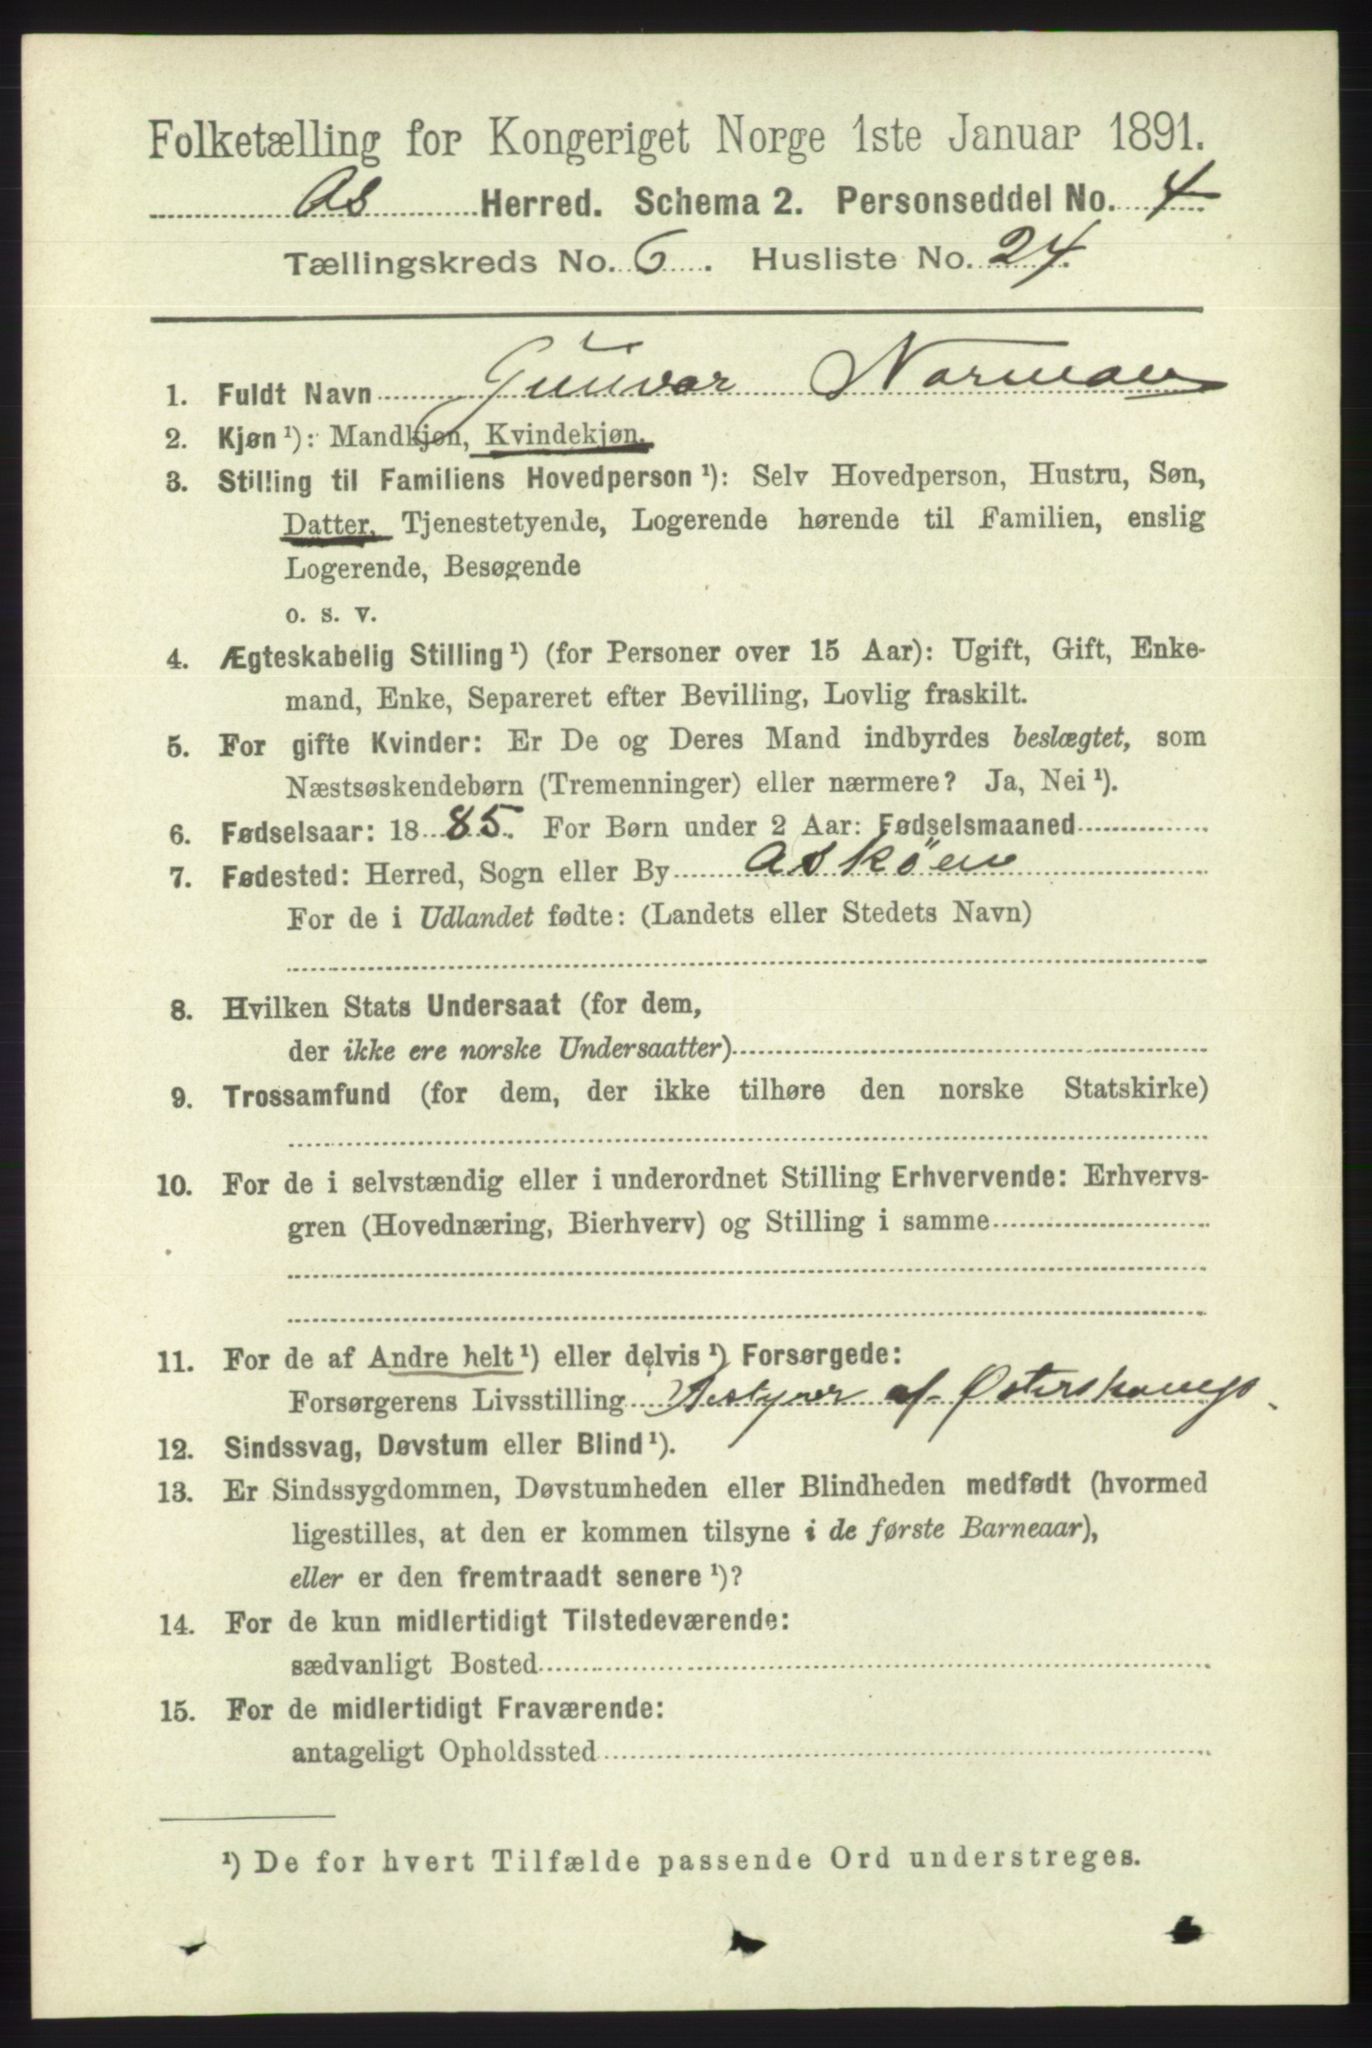 Folketælling for Kongeriget Norge 1ste Januar 1891.
As Herred. Schema 2. Personseddel No. 4
Tællingskreds No. 6. Husliste No. 24.
1. Fuldt Navn Gunvor Norman
2. Kjøn¹): Mandkjøn, Kvindekjøn.
3. Stilling til Familiens Hovedperson¹): Selv Hovedperson, Hustru, Søn,
Datter, Tjenestetyende, Logerende hørende til Familien, enslig
Logerende, Besøgende
o. s. v.
4. Ægteskabelig Stilling¹) (for Personer over 15 Aar): Ugift, Gift, Enke-
mand, Enke, Separeret efter Bevilling, Lovlig fraskilt.
5. For gifte Kvinder: Er De og Deres Mand indbyrdes beslægtet, som
Næstsøskendebørn (Tremenninger) eller nærmere? Ja, Nei¹).
6. Fødselsaar: 1885. For Børn under 2 Aar: Fødselsmaaned
7. Fødested: Herred, Sogn eller By Asköen
For de i Udlandet fødte: (Landets eller Stedets Navn)
8. Hvilken Stats Undersaat (for dem,
der ikke ere norske Undersaatter)
9. Trossamfund (for dem, der ikke tilhøre den norske Statskirke)
10. For de i selvstændig eller i underordnet Stilling Erhvervende: Erhvervs-
gren (Hovednæring, Bierhverv) og Stilling i samme
11. For de af Andre helt¹) eller delvis¹) Forsørgede:
Forsørgerens Livsstilling Bestyrer af
12. Sindssvag, Døvstum eller Blind¹).
13. Er Sindssygdommen, Døvstumheden eller Blindheden medfødt (hvormed
ligestilles, at den er kommen tilsyne i de første Barneaar),
eller er den fremtraadt senere¹)?
14. For de kun midlertidigt Tilstedeværende:
sædvanligt Bosted
15. For de midlertidigt Fraværende:
antageligt Opholdssted
¹) De for hvert Tilfælde passende Ord understreges.